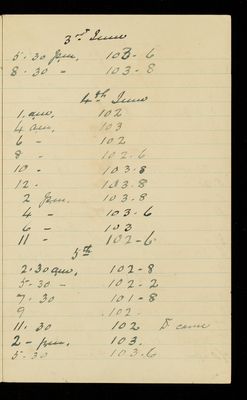 3rd June
5.30 pm. 103-6
8.30 - 103-8
4th June
1. am. 102
4 am. 103
6 - 102
8 - 102.6
10 - 103.8
12 - 103.8
2 pm. 103-8
4 - 103.6
6 - 103
11 - 102-6.
5th
2.30 am. 102-8
5-30 - 102-2
7.30 101-8
9 102-
11.30 102 Dr came
2 - pm. 103.
5-30 103.6